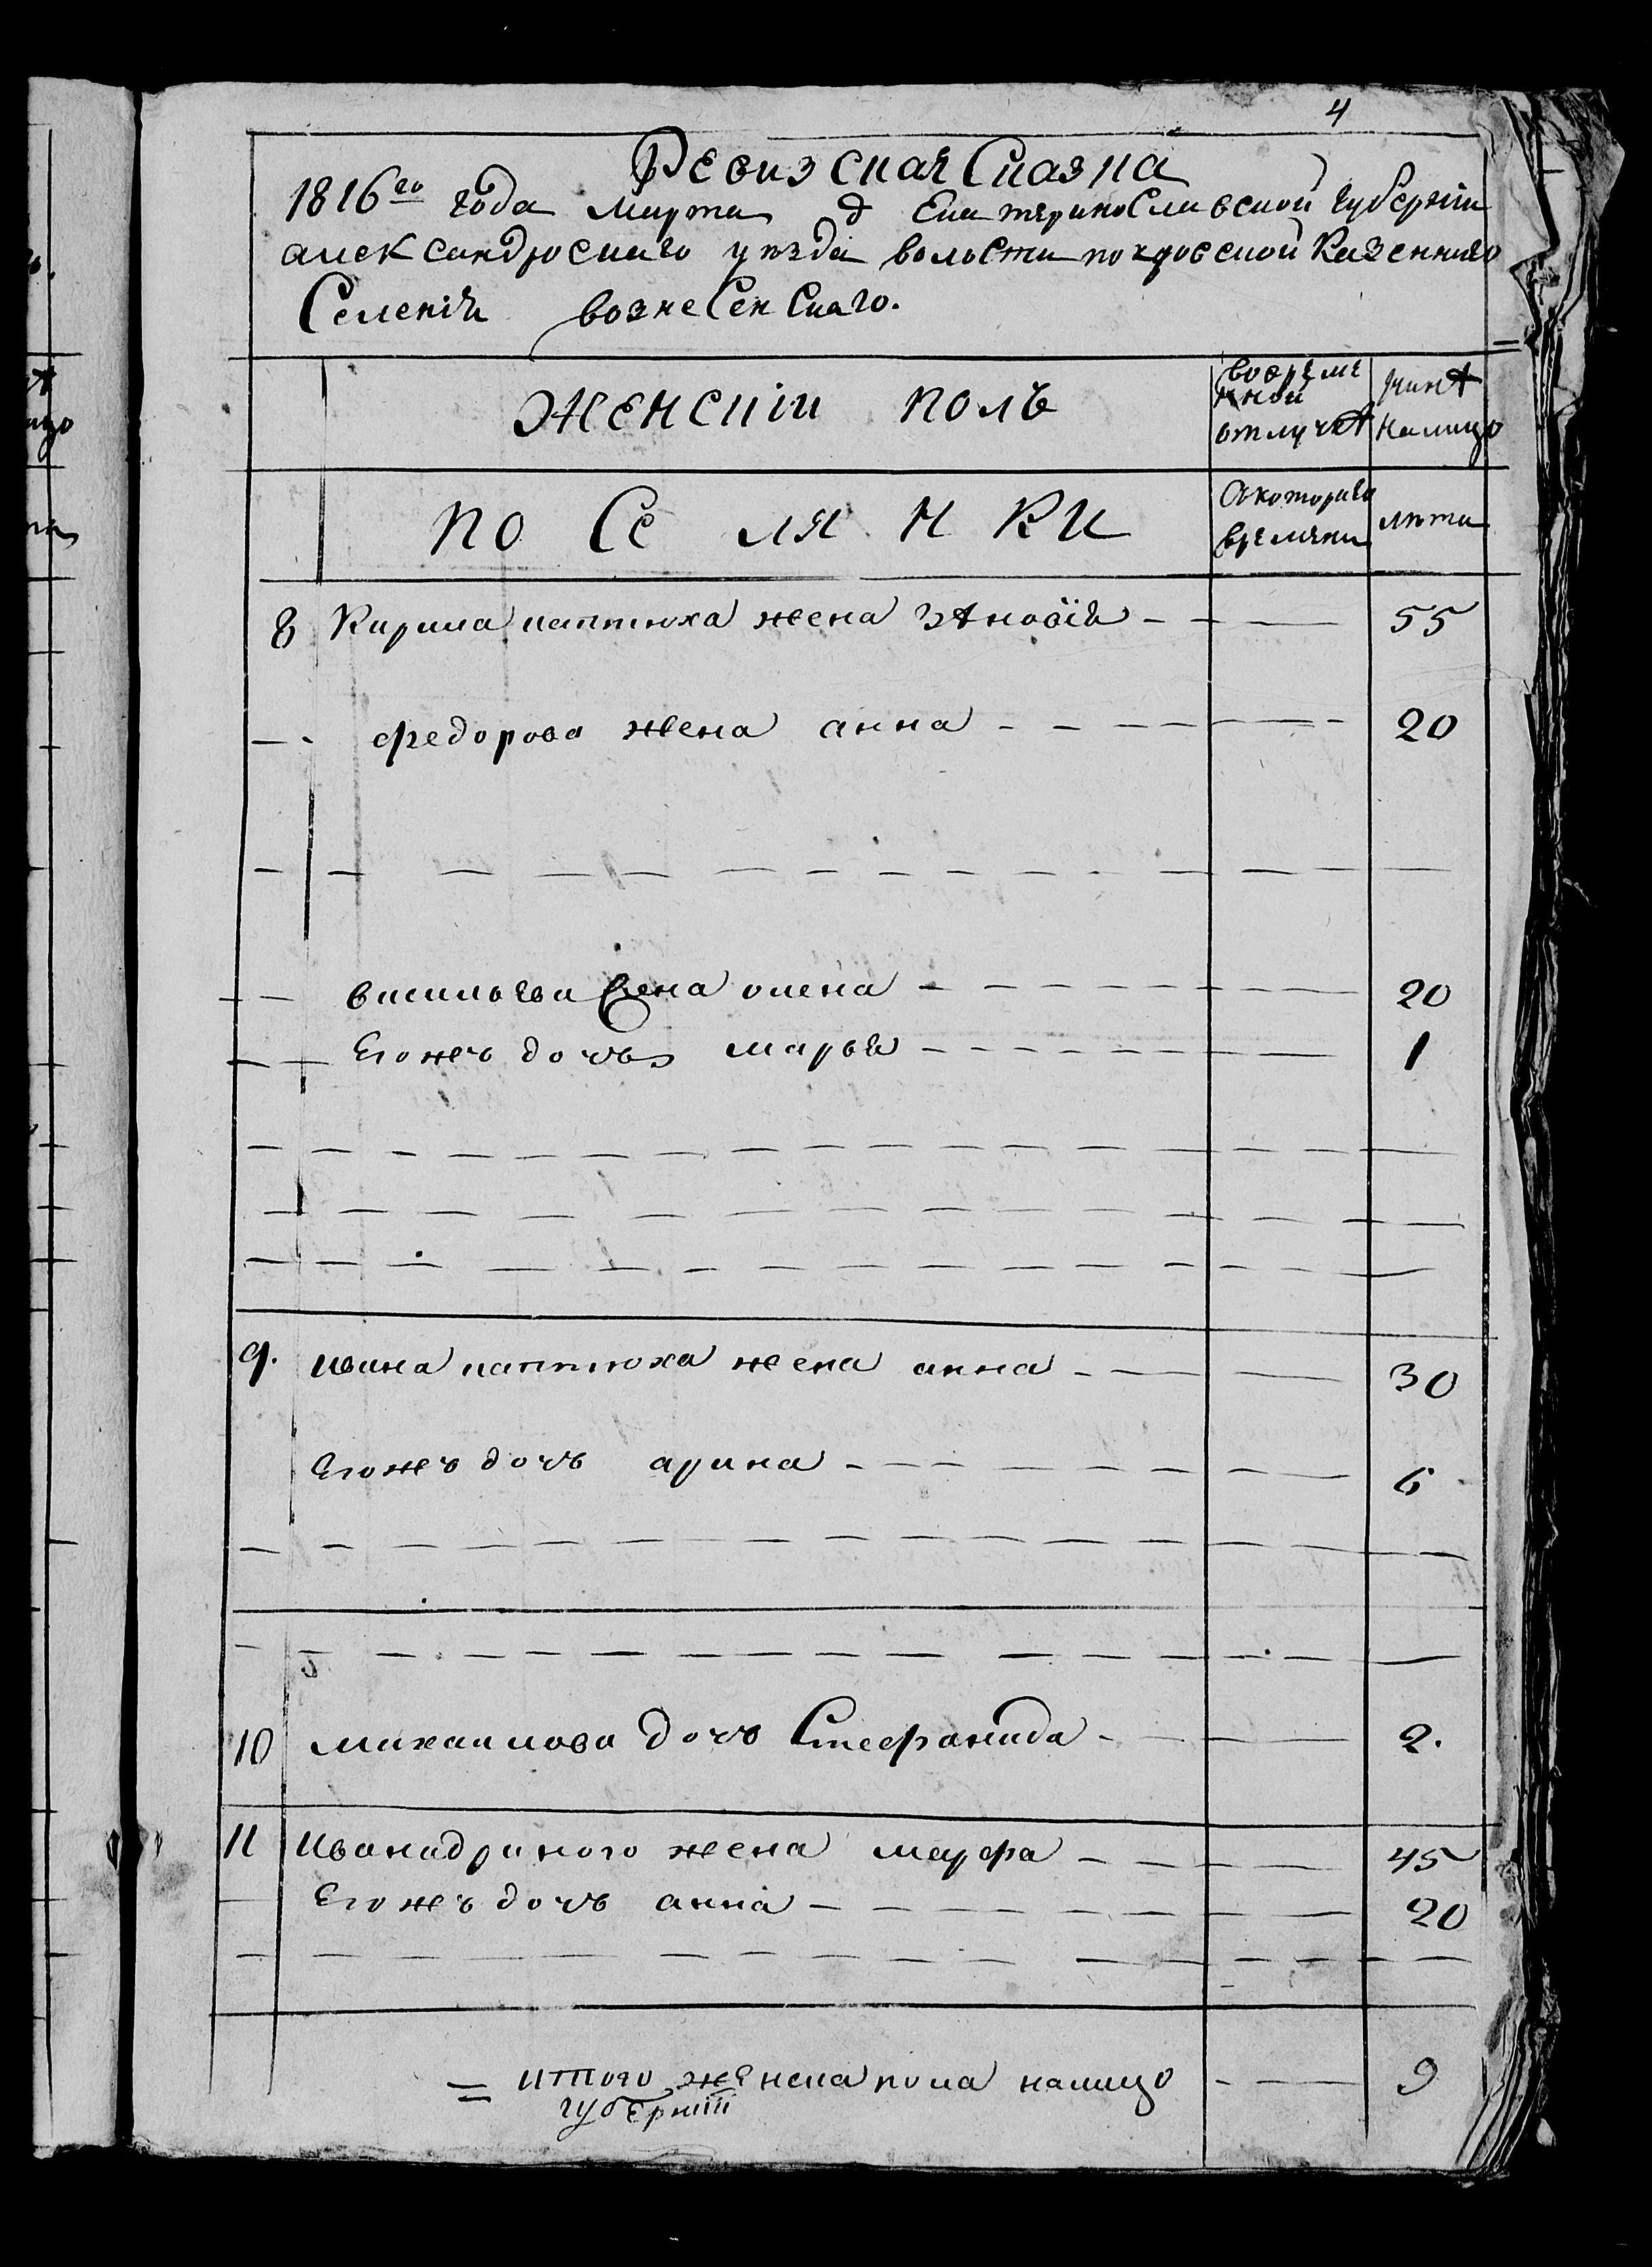 4
Ревизская Сказка
1816го года Марта д Екатеринославской губернiи
александровскаго уѣзда волости покровской Казеннаго
Селенiя вознесенскаго.
Женскiи полъ
вовреме
нной
отлучке
нинѣ
налицо
поселянки
Скотораго
времяни
лѣта
8 Кирила жена Зѣновiя 55
федорова жена анна 20
василева жена олена 20
Егожъ дочь марья 1
9. ивана жена анна 30
Егожъ дочъ арина 6
10 михаилова дочь Стефанида 2.
11 Ивана жена марфа 45
Егожъ дочъ анна 20
итого женска пола налицо 9
губернiи